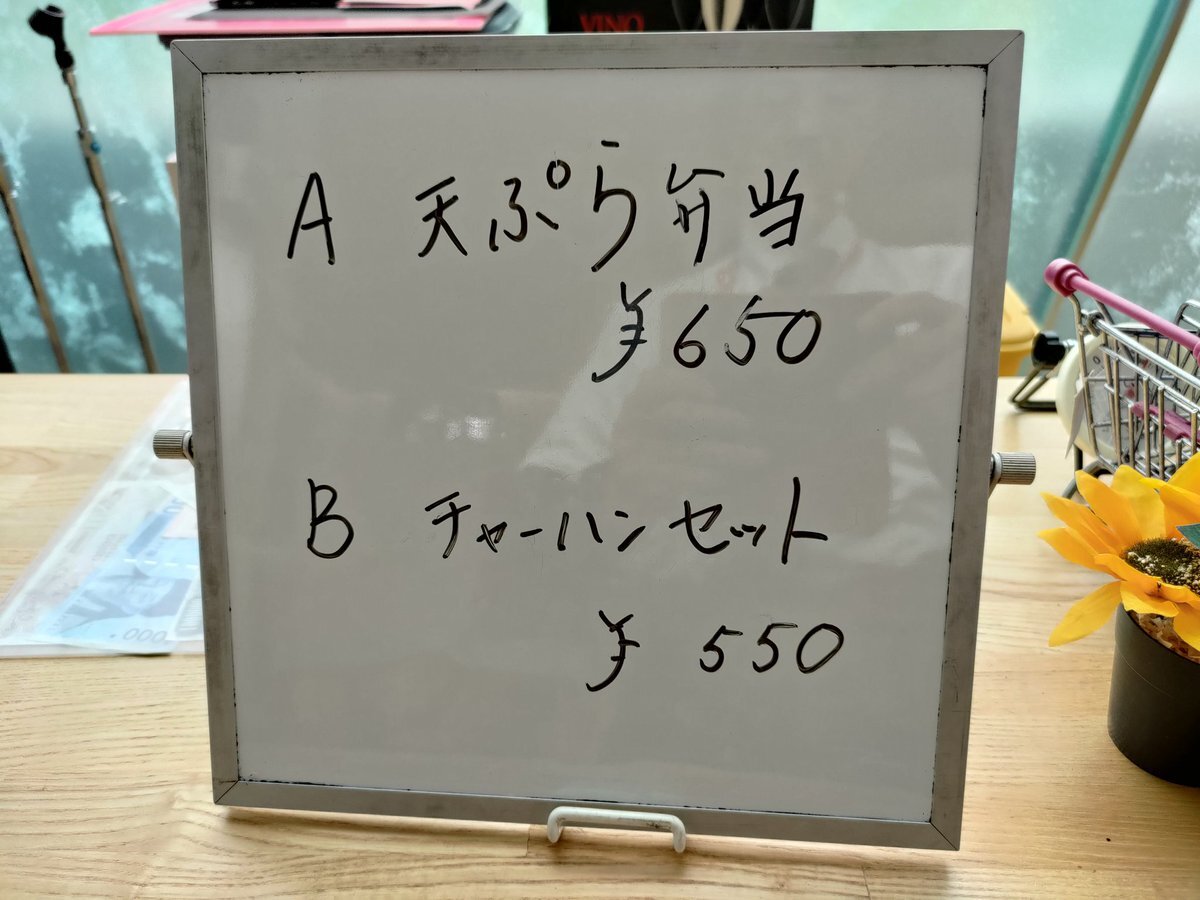 VINO
A 天ぷら弁当
¥650
B チャーハンセット
¥ 550
000